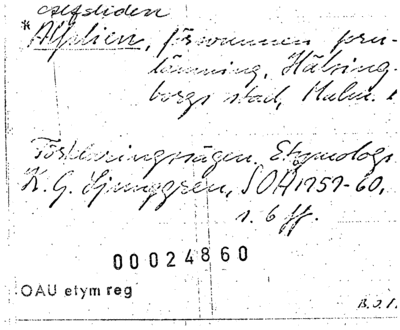 Alfsliden
* Alflien, försvunnen gru-
lämning, Hälsing-
borgs stad, Malm. l
Förklaringssägen. Etymologi
K. G. Ljunggren, SOÅ 1959-60,
s. 6 ff.
00024860
OAU etym reg
B.J.